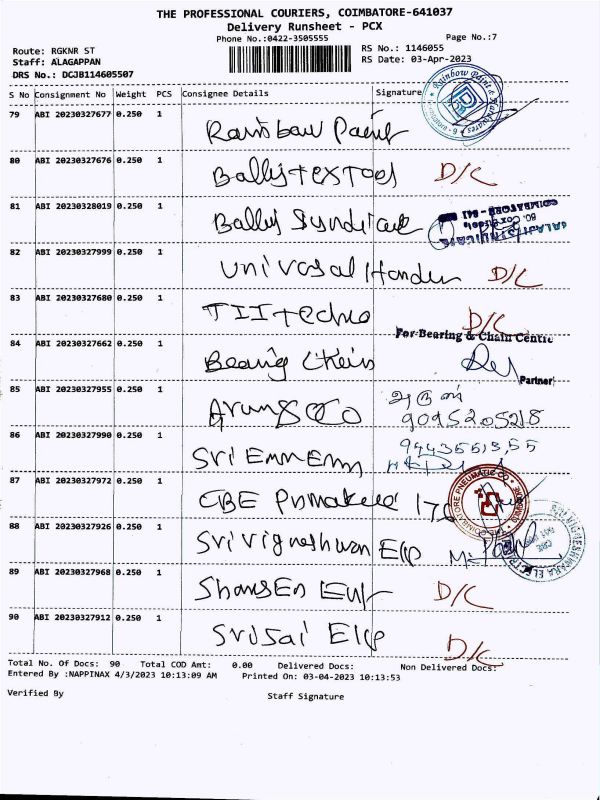 THE PROFESSIONAL COURIERS, COIMBATORE-641037
Delivery Runsheet - PCX
Phone No.:0422-3505555
Page No.:7
Route: RGKNR ST
RS No.: 1146055
Staff: ALAGAPPAN
RS Date: 03-Apr-2023
DRS No.: DCJB114605507
S No Consignment No Weight PCS Consignee Details Signature
79 ABI 20230327677 0.250 1
Rainbow Paint
80 ABI 20230327676 0.250 1
D/C
81 ABI 20230328019 0.250 1
82 ABI 20230327999 0.250 1
D/C
83 ABI 20230327680 0.250 1
TII techno D/C
84 ABI 20230327662 0.250 1
For Bearing & Chain Centre
Bearing Chain
Partner
85 ABI 20230327955 0.250 1
அருண்
Arun & Co 9095205218
86 ABI 20230327990 0.250 1
Sri Emm Emm
87 ABI 20230327972 0.250 1
CBE
88 ABI 20230327926 0.250 1
Sri Vigneshwara
89 ABI 20230327968 0.250 1
D/C
90 ABI 20230327912 0.250 1
Sri Sai D/C
Total No. Of Docs: 90 Total COD Amt: 0.00 Delivered Docs: Non Delivered Docs:
Entered By :NAPPINAX 4/3/2023 10:13:09 AM Printed On: 03-04-2023 10:13:53
Verified By Staff Signature